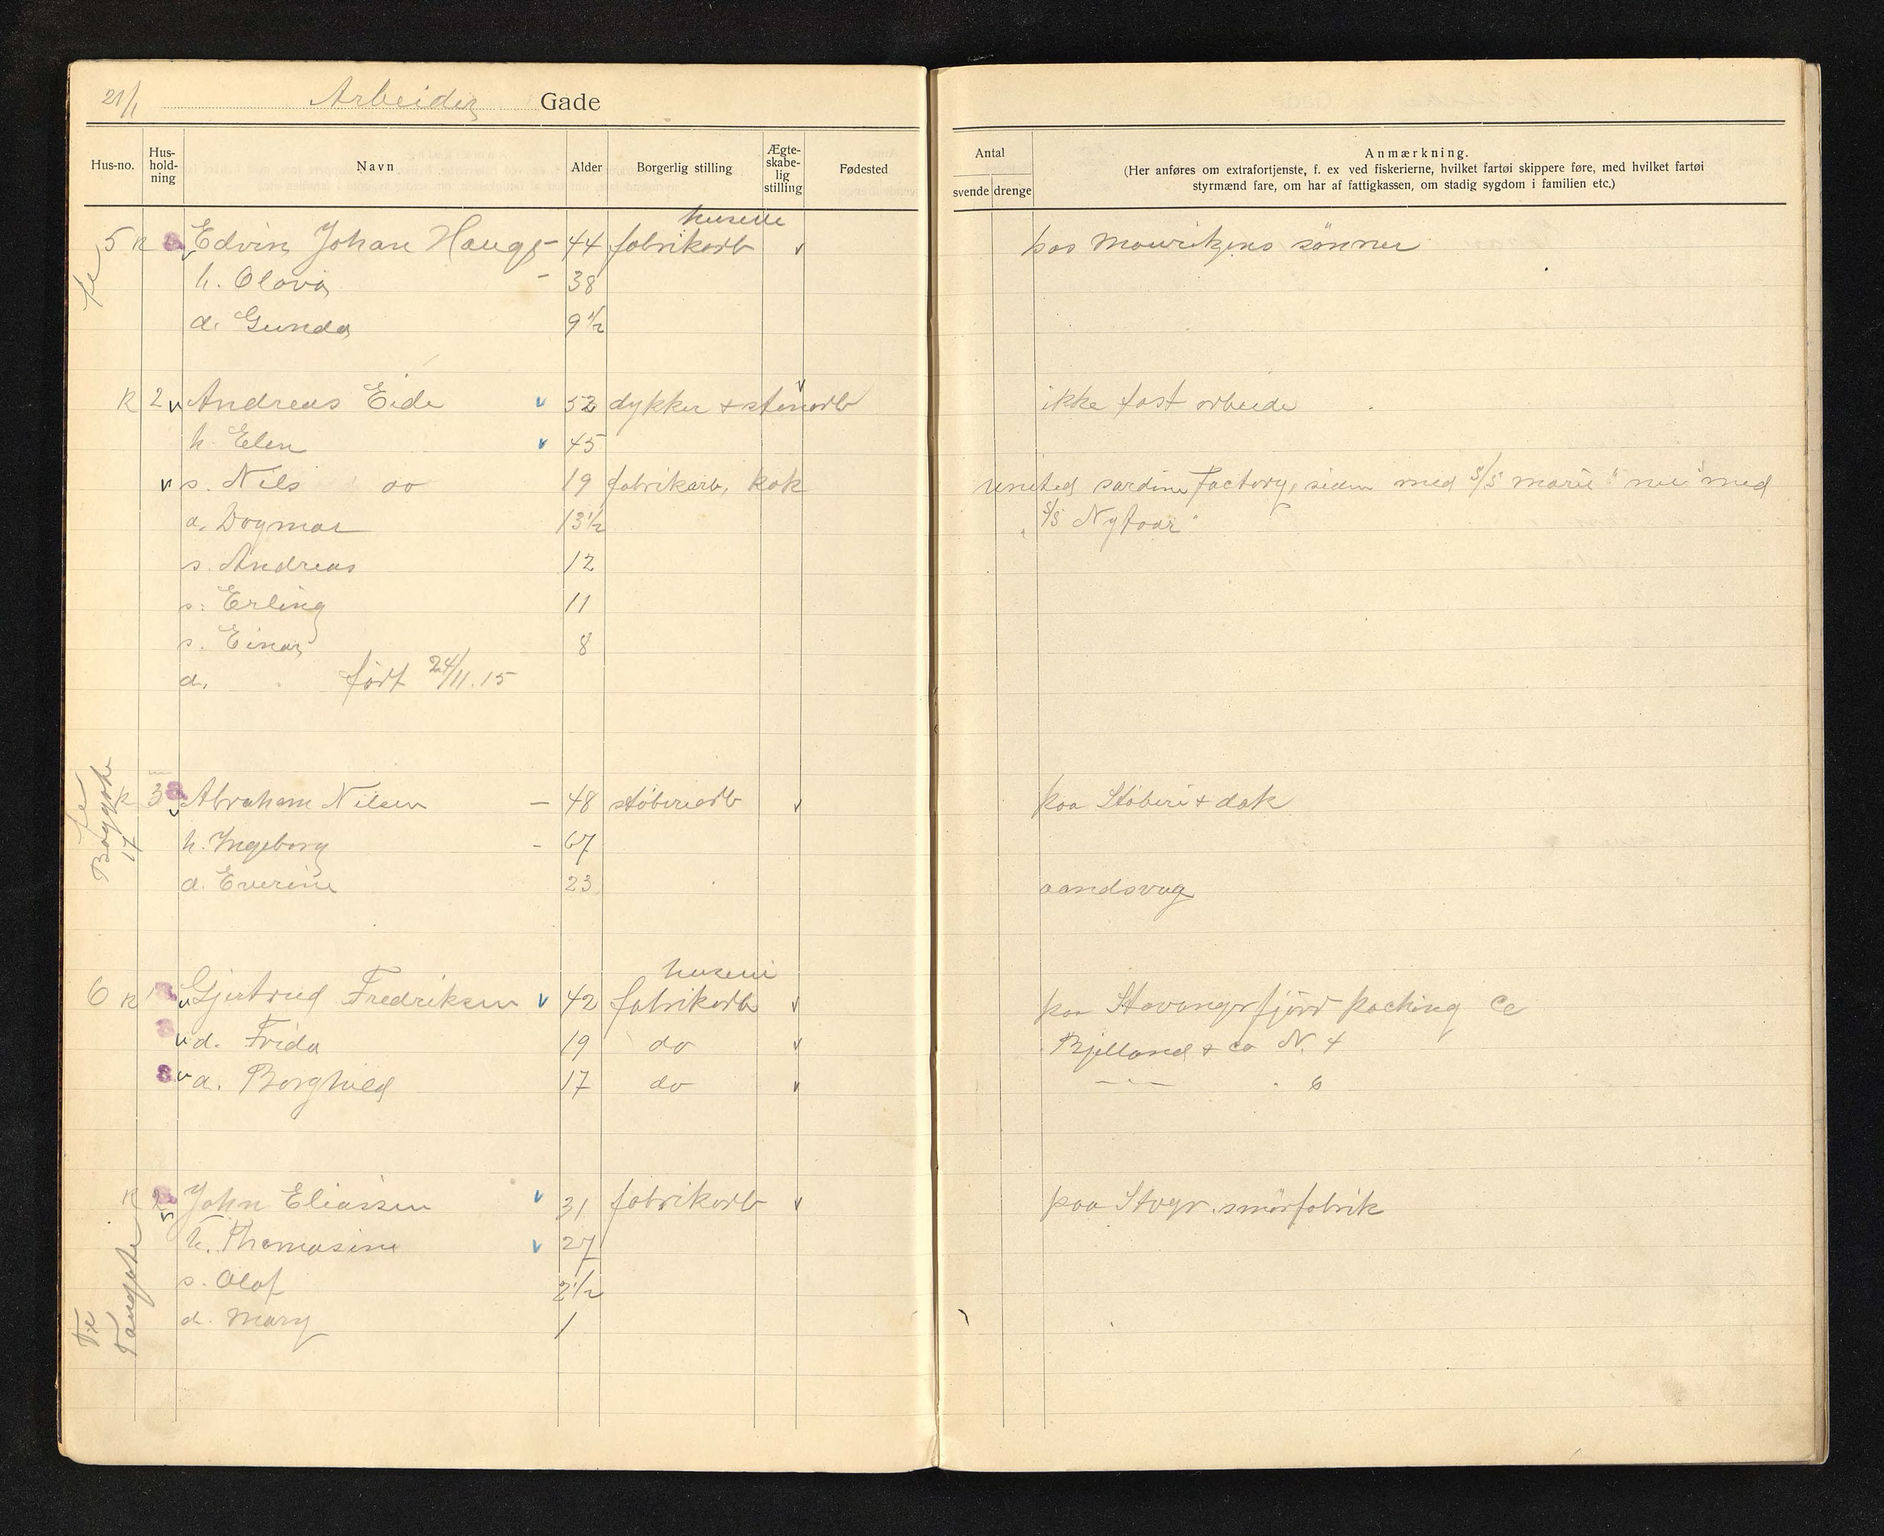 21/1 Arbeider Gade
Hus-no. Hus-hold-ning Navn Alder Borgerlig stilling Ægte-skabe-lig stilling Fødested
Antal svende drenge
Anmærkning.
(Her anføres om extrafortjenste, f. ex ved fiskerierne, hvilket fartøi skippere føre, med hvilket fartøi
styrmænd fare, om har af fattigkassen, om stadig sygdom i familien etc.)
huseie
5 k Edvin Johan Hauge 44 fabrikarb paa Mauritzens sønner
fr
h. Olava 38
d. Gunda 9 1/2
k 2 Andreas Eide 52 dykker + stenarb ikke fast arbeide
h. Elen 45
s. Nils do 19 fabrikarb, kok united sardine Factory, siden med S/S marie " nu med
d. Dagmar 13 1/2 „ S/S Nyfaar"
s. Andreas 12
s. Erling 11
s. Einar 8
d. født 24/11.15
k 3 Abraham Nilsen 48 støberiarb paa Støberi & dok
fr
17
h. Ingeborg 67
d. Everine 23 aandsvag
huseie
6 k Gjertrud Fredriksen 42 fabrikarb paa Stavangerfjord packing Co
d. Frida 19 do Bjelland & co N. 4
d. Borghild 17 do —"— " 6
k 2 John Eliassen 31 fabrikarb paa Stvgr. smørfabrik
h. Thomasine 27
s. Olaf 2 1/2
d. Mary 1